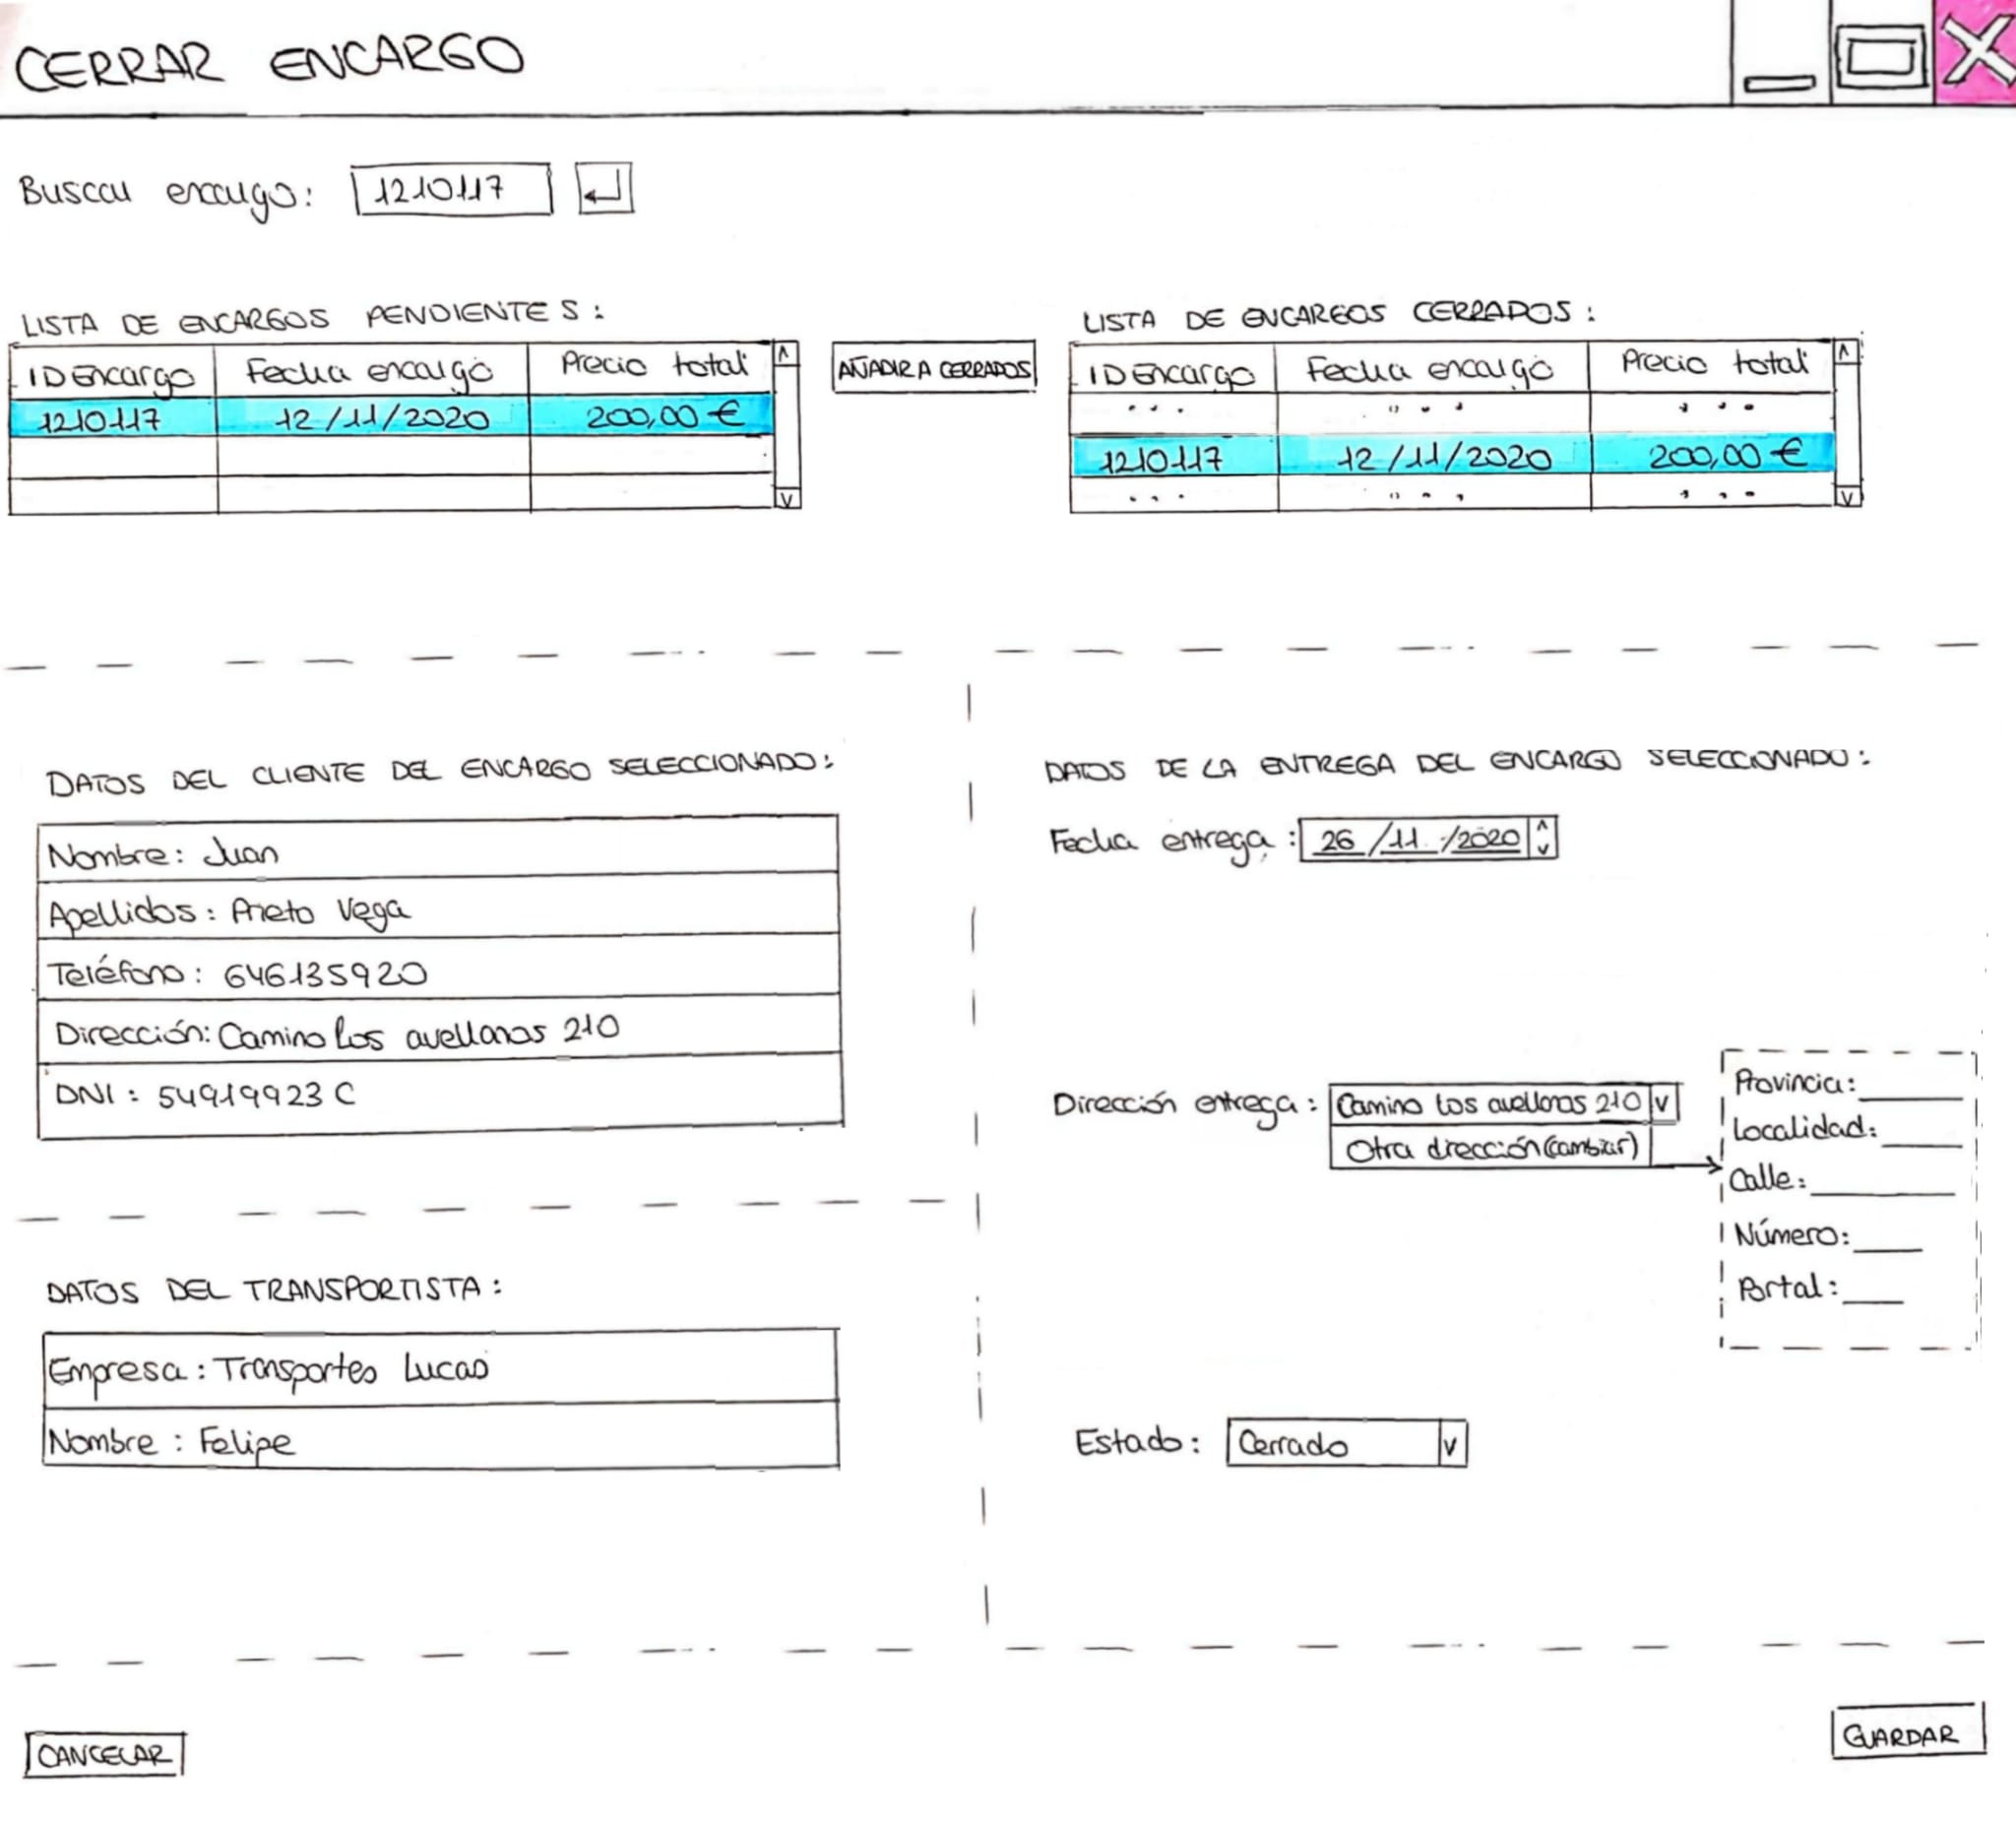 CERRAR ENCARGO
Buscar encargo: 1210117
LISTA DE ENCARGOS PENDIENTES:
LISTA DE ENCARGOS CERRADOS:
ID Encargo Fecha encargo Precio total
AÑADIR A CERRADOS
ID Encargo Fecha encargo Precio total
1210117 12/11/2020 200,00 €
1210117 12/11/2020 200,00 €
DATOS DEL CLIENTE DEL ENCARGO SELECCIONADO:
Nombre: Juan
Apellidos: Prieto Vega
Teléfono: 646135920
Dirección: Camino los avellanos 210
DNI: 54919923 C
DATOS DEL TRANSPORTISTA:
Empresa: Transportes Lucas
Nombre: Felipe
DATOS DE LA ENTREGA DEL ENCARGO SELECCIONADO:
Fecha entrega: 26/11/2020
Dirección entrega: Camino los avellanos 210
Otra dirección (cambiar)
Provincia:
Localidad:
Calle:
Número:
Portal:
Estado: Cerrado
CANCELAR
GUARDAR